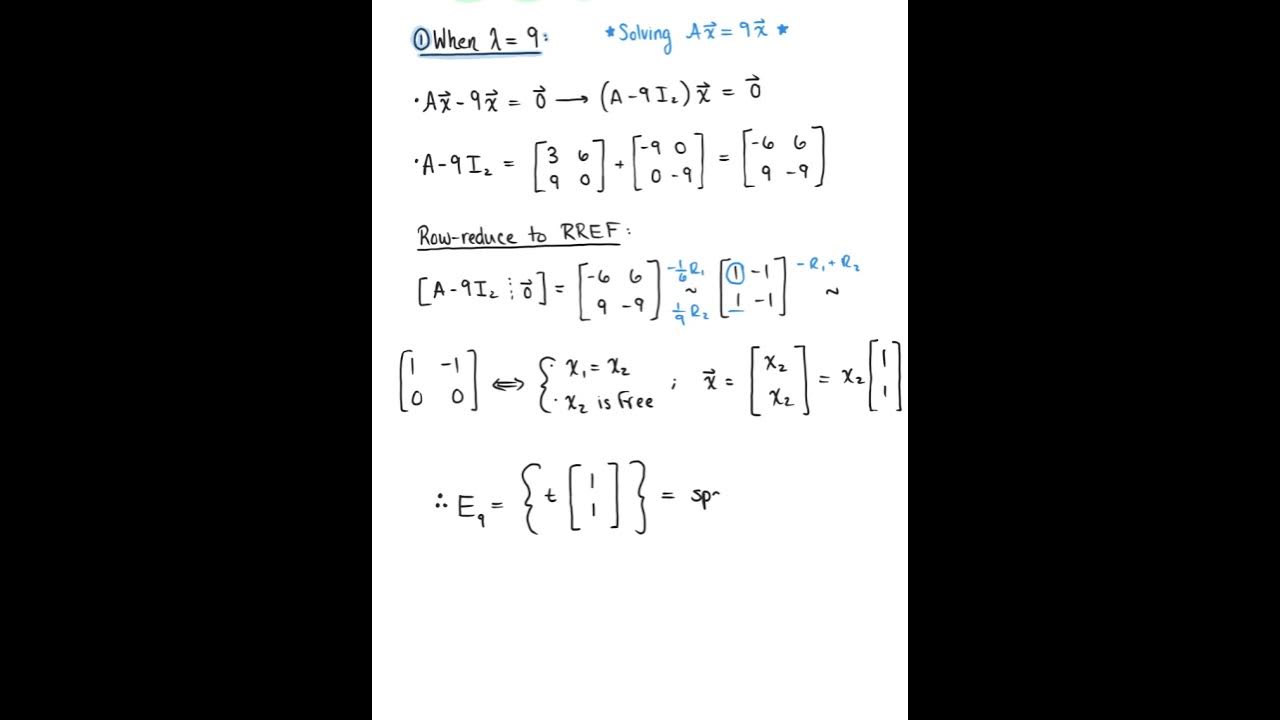 ① When λ = 9: *Solving Ax⃗ = 9x⃗ *
· Ax⃗ - 9x⃗ = 0⃗ → (A - 9I₂) x⃗ = 0⃗
· A - 9I₂ = [3 6; 9 0] + [-9 0; 0 -9] = [-6 6; 9 -9]
Row-reduce to RREF:
[A - 9I₂ ⋮ 0⃗] = [-6 6; 9 -9] -1/6 R₁ ~ 1/9 R₂ [1 -1; 1 -1] -R₁ + R₂ ~
[1 -1; 0 0] ⟺ { · x₁ = x₂ · x₂ is Free ; x⃗ = [x₂; x₂] = x₂ [1; 1]
∴ E₉ = { t [1; 1] } = sp